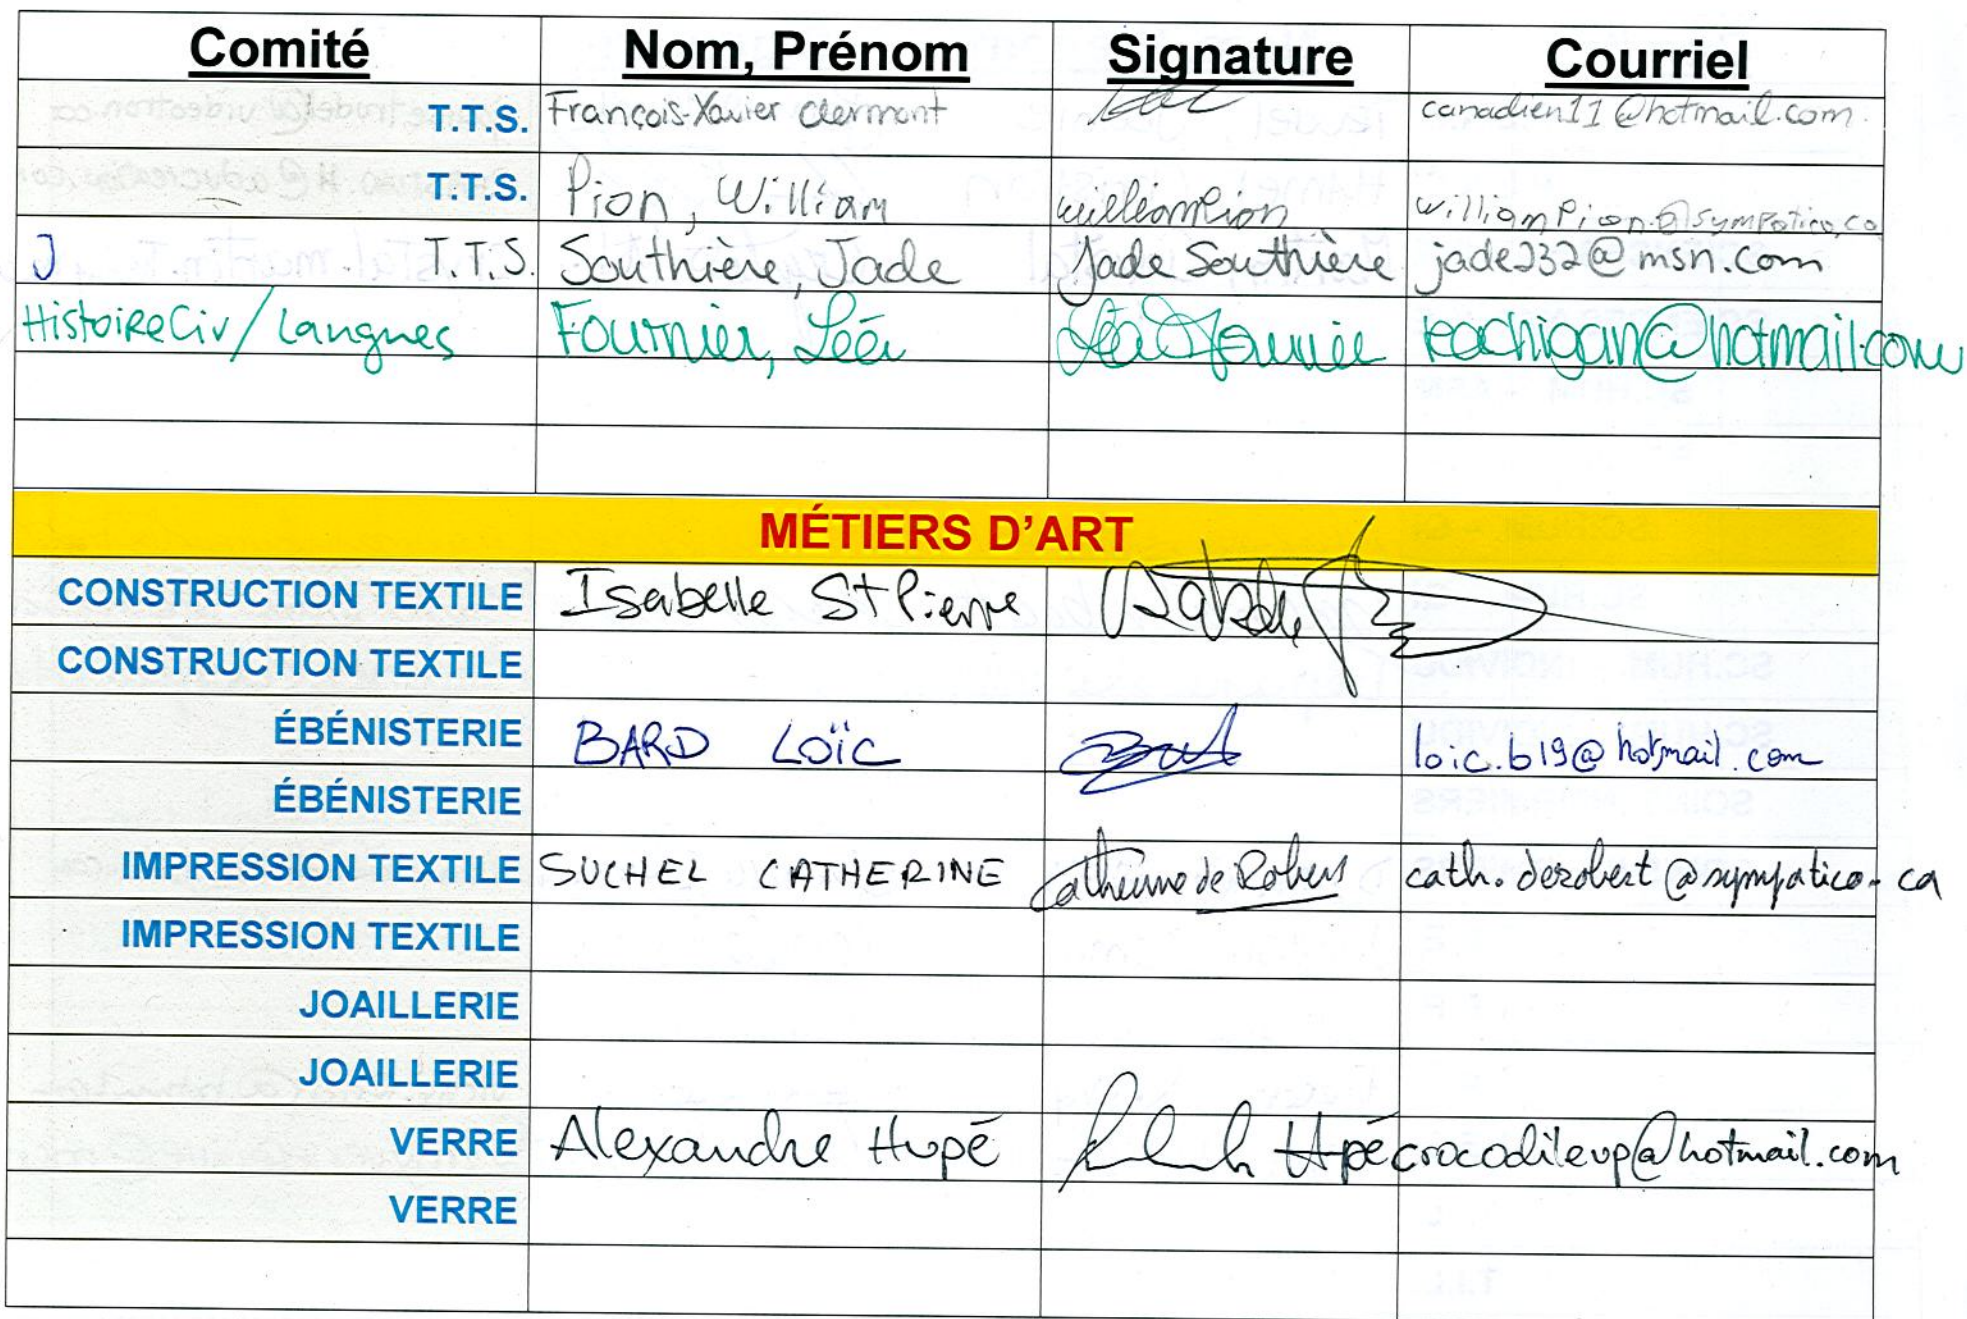 Comité Nom, Prénom Signature Courriel
T.T.S. François-Xavier Clermont canadien11@hotmail.com
T.T.S. Pion, William William Pion williampion@sympatico.ca
J T.T.S. Southière, Jade Jade Southière jade232@msn.com
Histoire Civ/Langues Fournier, Léa Léa Fournier leachigan@hotmail.com
MÉTIERS D'ART
CONSTRUCTION TEXTILE Isabelle St Pierre
CONSTRUCTION TEXTILE
ÉBÉNISTERIE BARD LOÏC loic.b19@hotmail.com
ÉBÉNISTERIE
IMPRESSION TEXTILE SUCHEL CATHERINE Catherine de Robert cath.derobert@sympatico.ca
IMPRESSION TEXTILE
JOAILLERIE
JOAILLERIE
VERRE Alexandre Hupé Hupé crocodileup@hotmail.com
VERRE